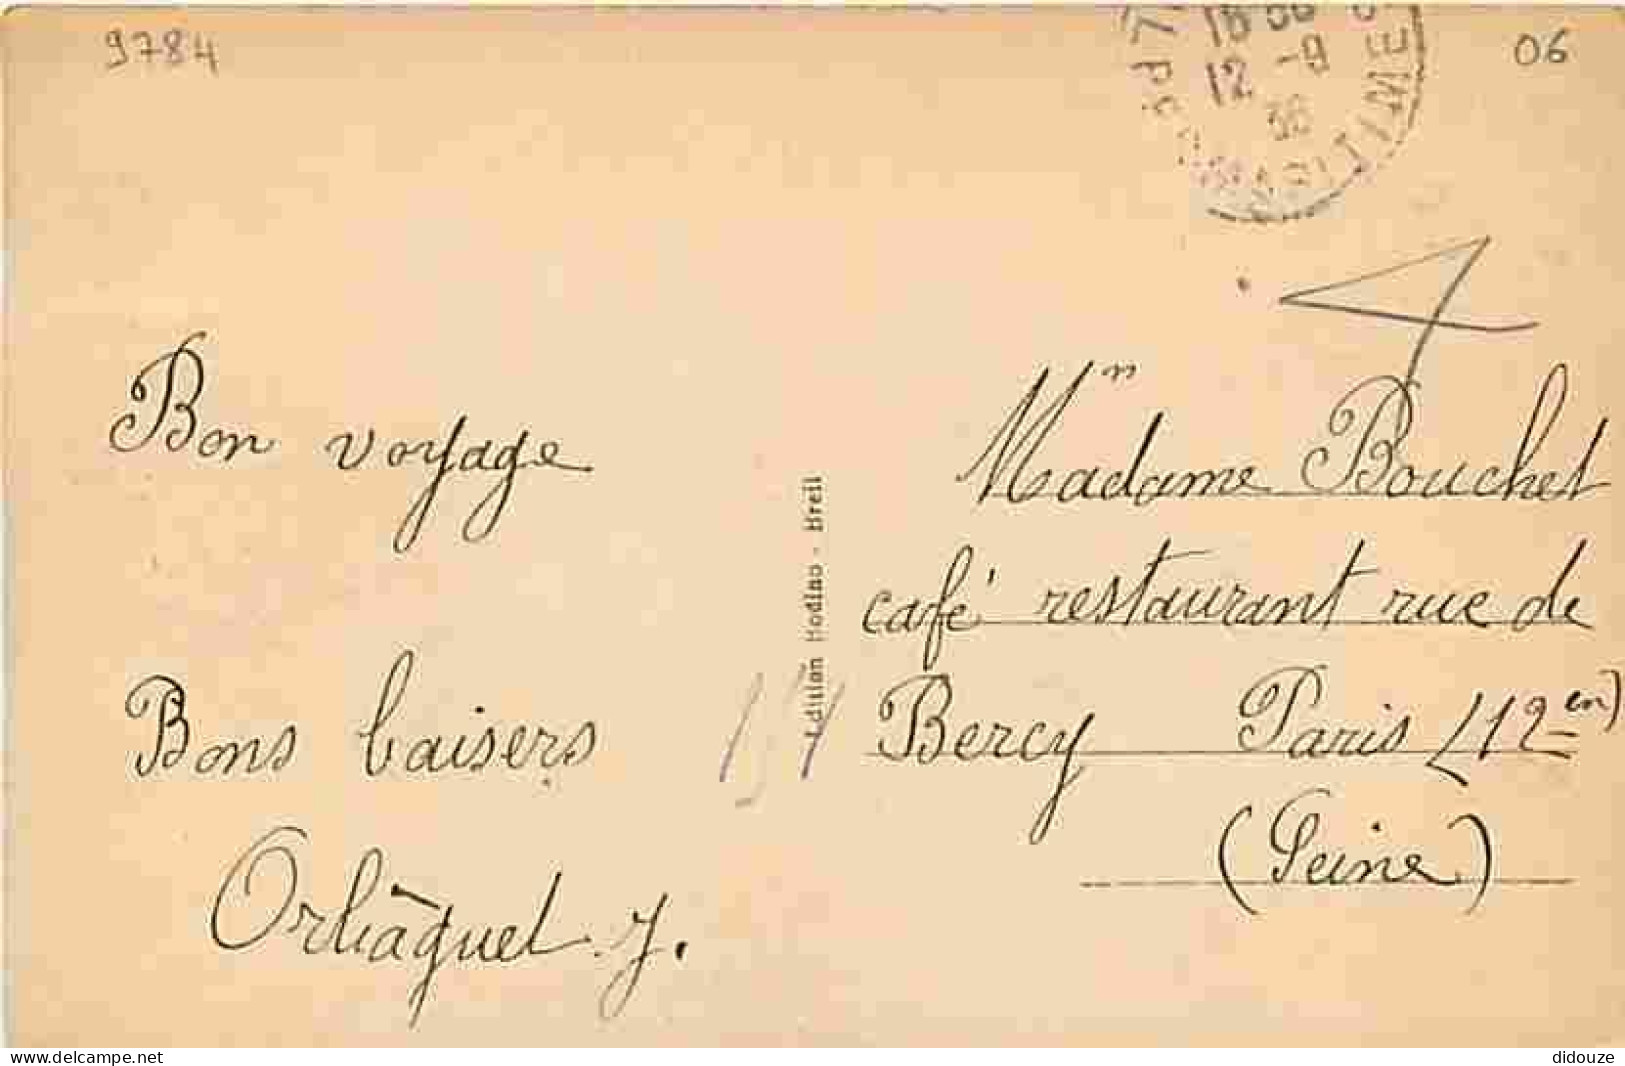 9784
06
18 30
12 -9
36
MARITIMES
Bon voyage
Bons baisers
Orliaguet J.
Edition Hodino - Breil
Mme
Madame Bouchet
café restaurant rue de
Bercy Paris (12en)
(Seine)
delcampe.net
didouze